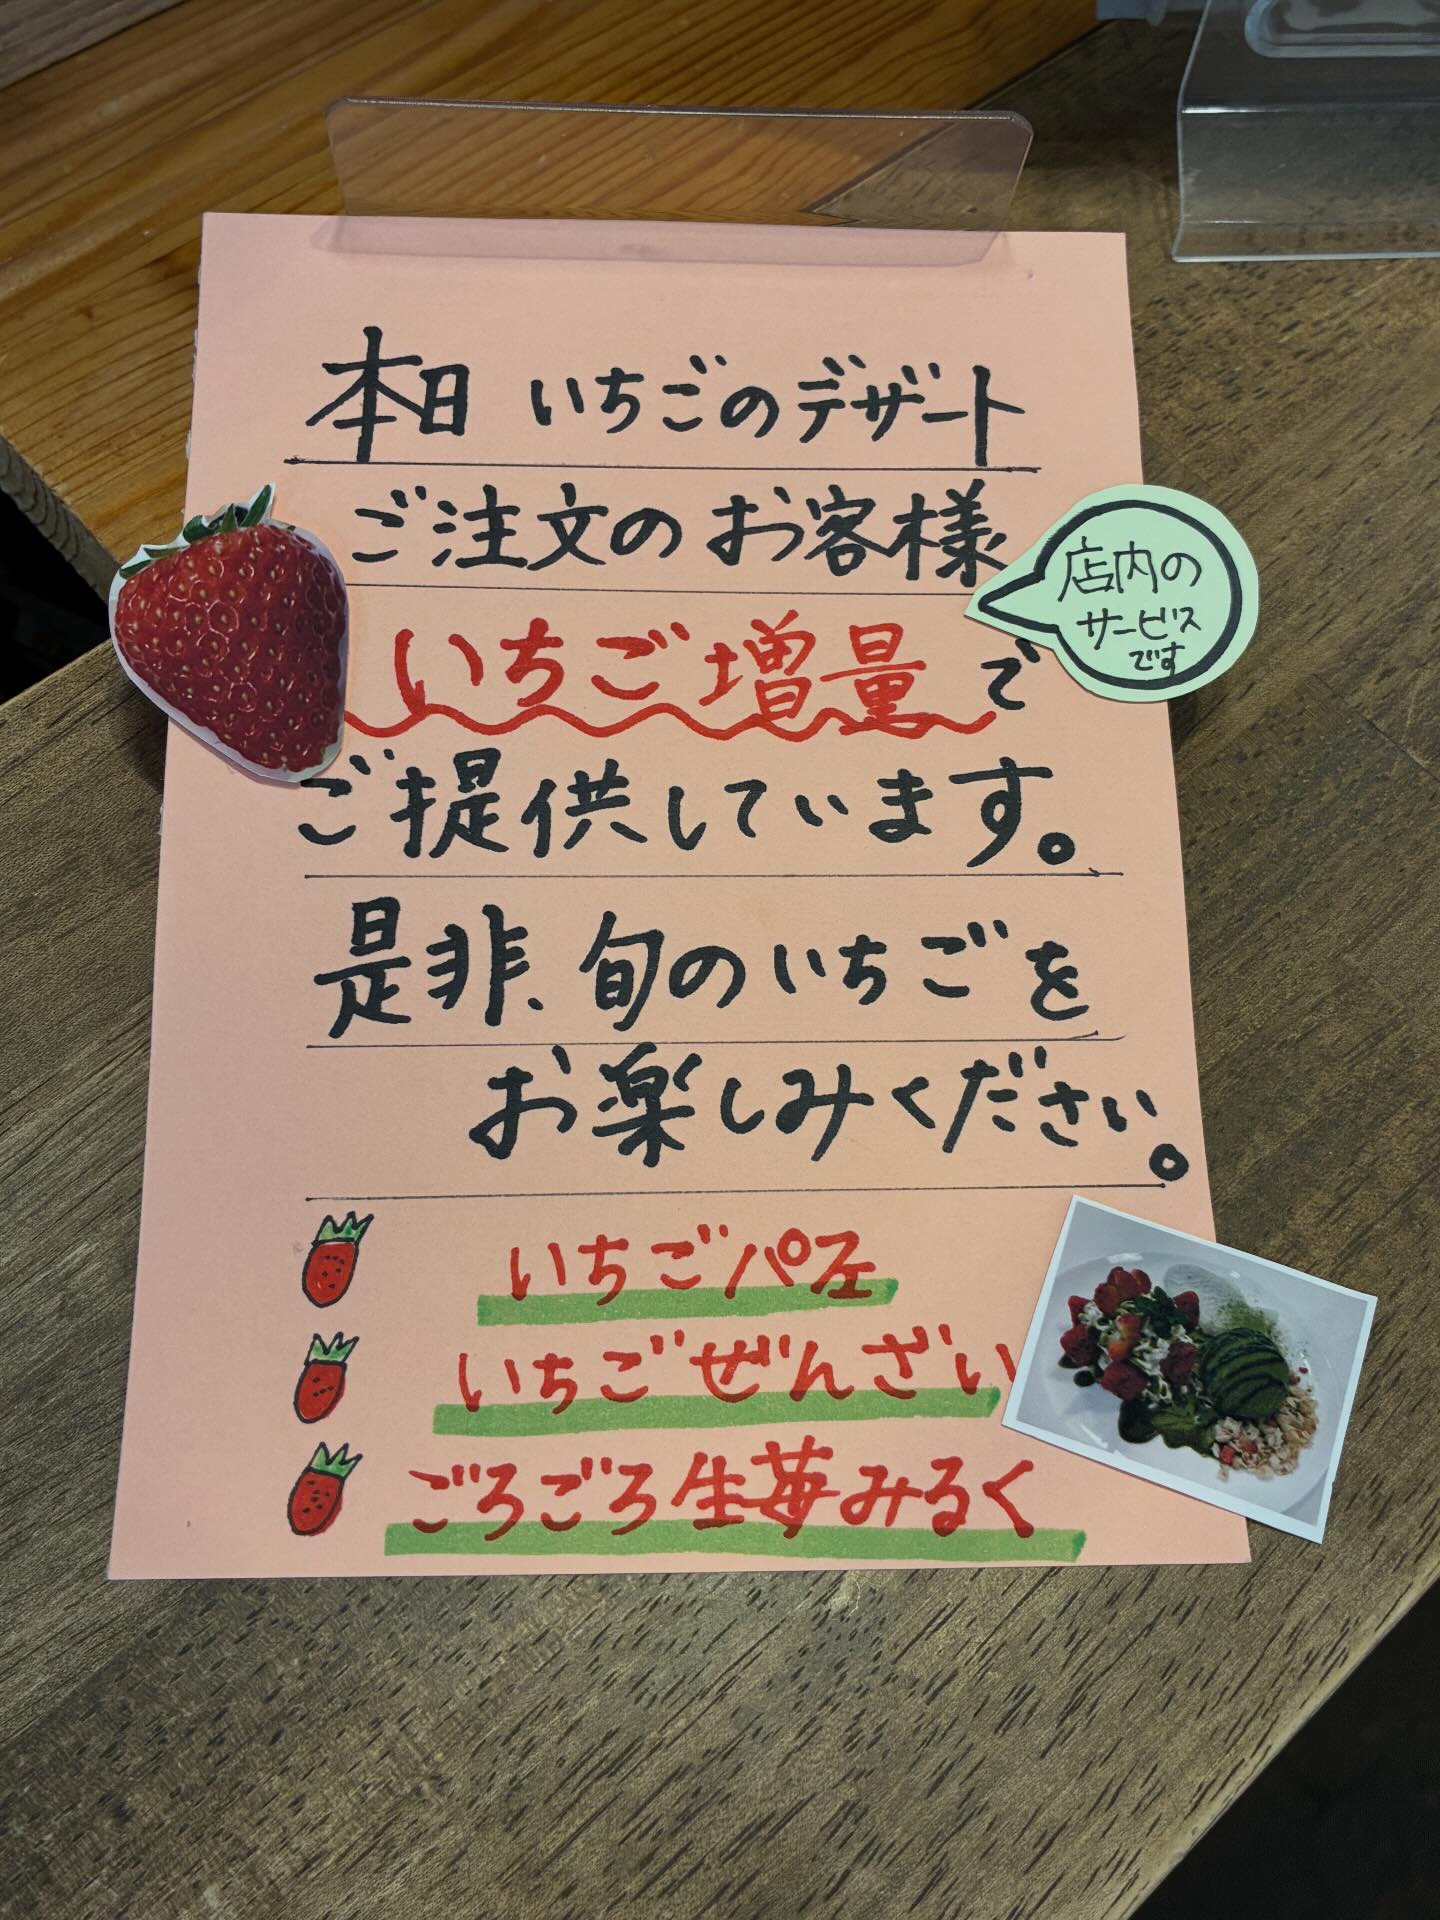 本日 いちごのデザート
ご注文のお客様
いちご増量で
店内の
サービス
です
ご提供しています。
是非、旬のいちごを
お楽しみください。
いちごパフェ
いちごぜんざい
ごろごろ生苺みるく